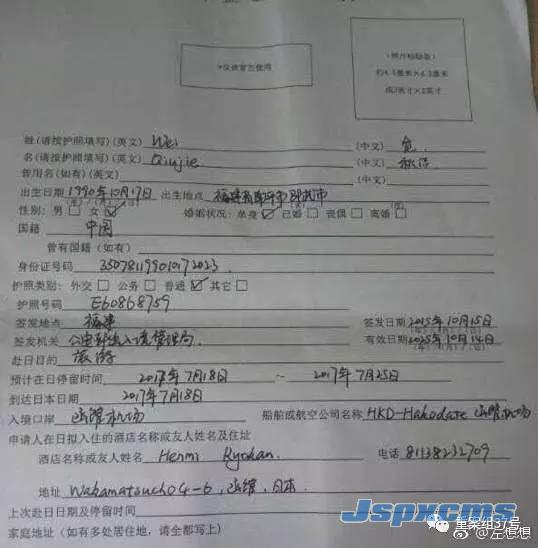 *仅供官方使用
(照片粘贴处)
约4.5厘米×4.5厘米
或2英寸×2英寸
姓(请按护照填写)(英文) Wei (中文) 危
名(请按护照填写)(英文) Qiujie (中文) 秋洁
曾用名(如有)(英文) (中文)
出生日期 1990年10月17日 出生地点 福建省南平市邵武市
(日)/(月)/(年)
性别: 男□ 女☑ 婚姻状况: 单身☑ 已婚□ 丧偶□ 离婚□
国籍 中国
曾有国籍(如有)
身份证号码 350781199010172023
护照类别: 外交□ 公务□ 普通☑ 其它□
护照号码 E60868759
签发地点 福建 签发日期 2015年10月15日
签发机关 公安部出入境管理局 有效日期 2025年10月14日
赴日目的 旅游
预计在日停留时间 2017年7月18日 ~ 2017年7月25日
到达日本日期 2017年7月18日
入境口岸 函館机场 船舶或航空公司名称 HKD-Hakodate 函館机场
申请人在日拟入住的酒店名称或友人姓名及住址
酒店名称或友人姓名 Henmi Ryokan. 电话 81138232709
地址 Wakamatsucho 4-6, 函館, 日本.
上次赴日日期及停留时间
家庭地址(如有多处居住地,请全部写上)
Jspxcms
重案组37号
@左想想